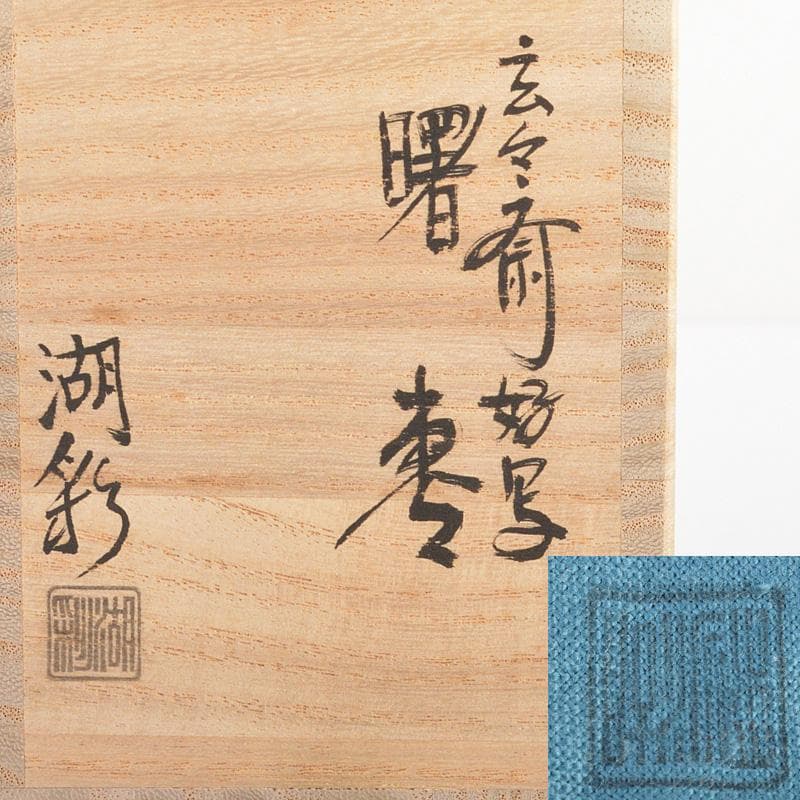 玄々斎好写
曙棗
湖彩
湖彩